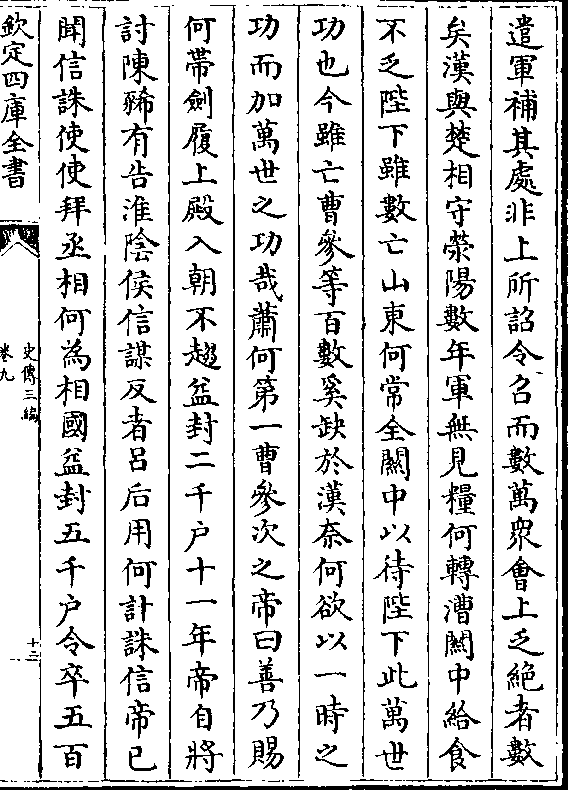 遣軍補其處非上所詔令召而數萬眾會上乏絶者數
矣漢與楚相守滎陽數年軍無見糧何轉漕關中給食
不乏陛下雖數亡山東何常全關中以待陛下此萬世
功也今雖亡曹參等百數奚缺於漢奈何欲以一時之
功而加萬世之功哉蕭何第一曹參次之帝曰善乃賜
何帶劍履上殿入朝不趨益封二千户十一年帝自將
討陳豨有告淮隂侯信謀反者吕后用何計誅信帝已
聞信誅使使拜丞相何為相國益封五千户令卒五百
欽定四庫全書
史傳三編
卷九
十三